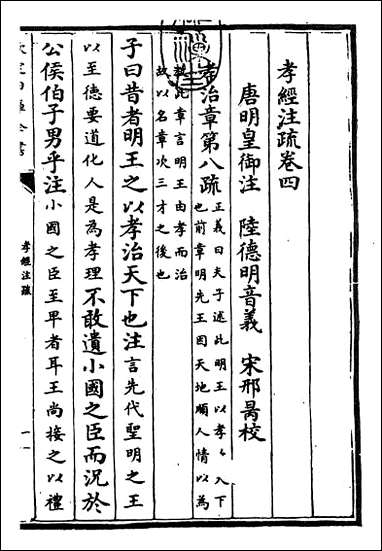 孝經注疏卷四
唐明皇御注 陸德明音義 宋邢昺校
孝治章第八疏
正義曰夫子述此明王以孝
入下
也前章明先王因天地順人情以為
教此章言明王由孝而治
故以名章次三才之後也
子曰昔者明王之以孝治天下也注言先代聖明之王
以至德要道化人是為孝理不敢遺小國之臣而況於
公侯伯子男乎注小國之臣至卑者耳王尚接之以禮
孝經注疏